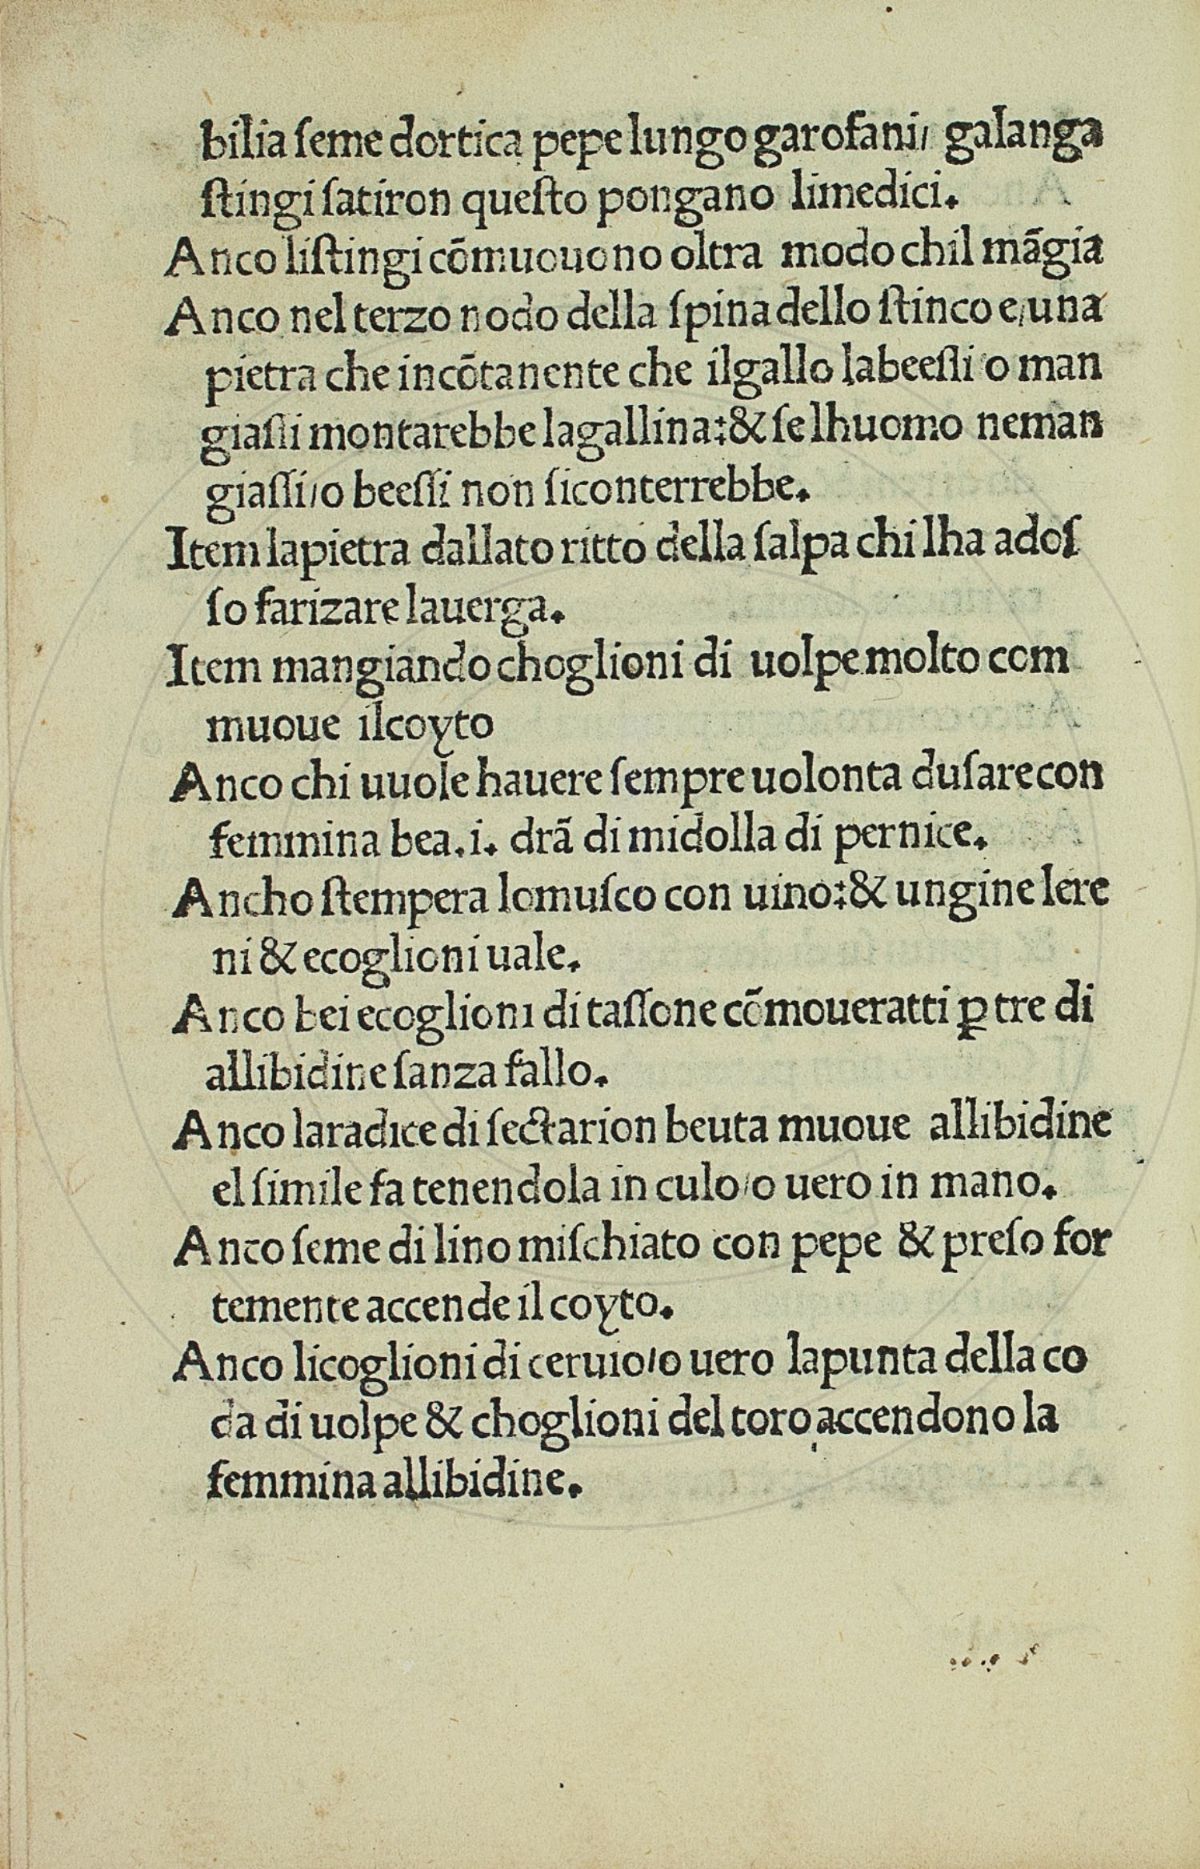 bilia ſeme dortica pepe lungo garofani/ galanga
ſtingi ſatiron queſto pongano limedici.
Anco liſtingi cōmuouono oltra modo chil māgia
Anco nel terzo nodo della ſpina dello ſtinco e/una
pietra che incōtanente che ilgallo labeeſſi o man
giaſſi montarebbe lagallina:& ſe lhuomo neman
giaſſi/o beeſſi non ſiconterrebbe.
Item lapietra dallato ritto della ſalpa chi lha adoſ
ſo farizare lauerga.
Item mangiando choglioni di uolpe molto com
muoue ilcoyto
Anco chi uuole hauere ſempre uolonta duſare con
femmina bea.i. drā di midolla di pernice.
Ancho ſtempera lomuſco con uino:& ungine lere
ni & ecoglioni uale.
Anco bei ecoglioni di taſſone cōmoueratti ꝑ tre di
allibidine ſanza fallo.
Anco laradice di ſectarion beuta muoue allibidine
el ſimile fa tenendola in culo/o uero in mano.
Anco ſeme di lino miſchiato con pepe & preſo for
temente accende il coyto.
Anco licoglioni di ceruio/o uero lapunta della co
da di uolpe & choglioni del toro accendono la
femmina allibidine.